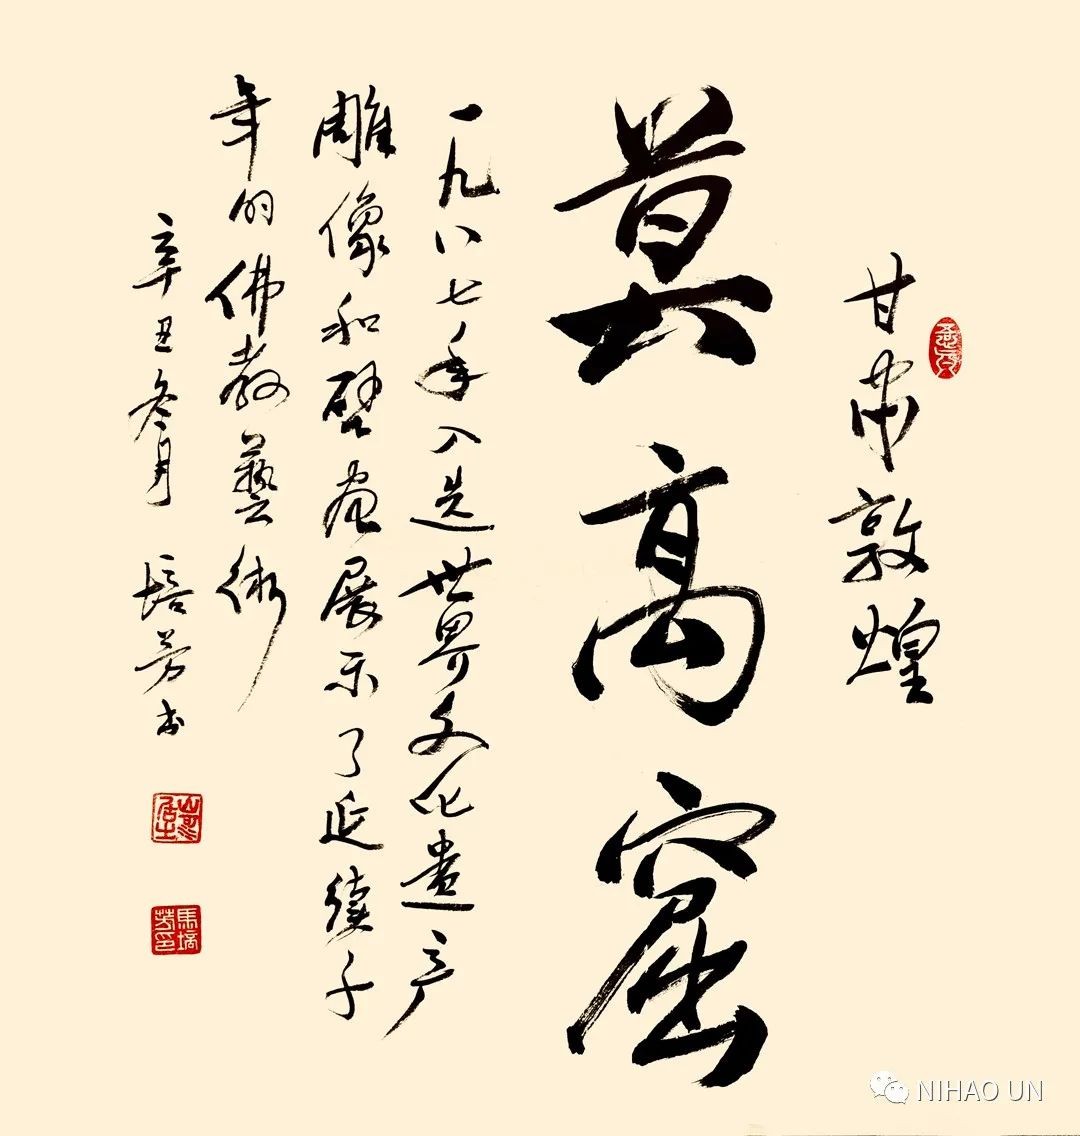 甘肃敦煌
莫高窟
一九八七年入选世界文化遗产
雕像和壁画展示了延续千
年的佛教藝術
辛丑冬月 培芳书
馬培芳印
NIHAO UN